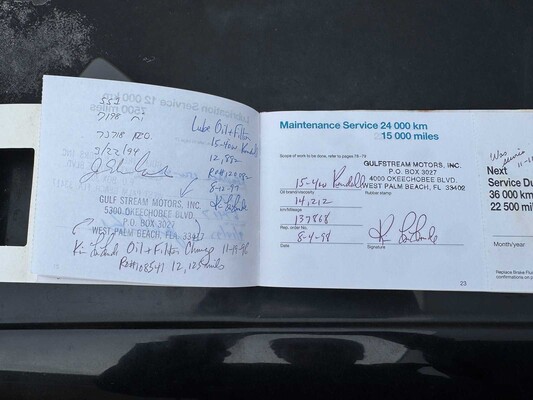 7198 mi
73718 R.O.
3/22/94
Lube Oil + Filter
15-40w Kendall
8-12-97
GULF STREAM MOTORS, INC.
5300 OKEECHOBEE BLVD.
P.O. BOX 3027
WEST PALM BEACH, FLA. 33417
Oil + Filter Change 11-19-96
RO#108541 12,125 miles
Maintenance Service 24 000 km
15 000 miles
Scope of work to be done, refer to pages
GULFSTREAM MOTORS, INC.
P.O. BOX 3027
4000 OKEECHOBEE BLVD.
WEST PALM BEACH, FL 33402
15-40w Kendall
Oil brand/viscosity
Rubber stamp
14,212
km/Mileage
137868
Rep. order No.
8-4-98
Date
Signature
23
Was
Next
Service Du
36 000 km
22 500 mil
Month/year
Replace Brake Flu
confirmations on p